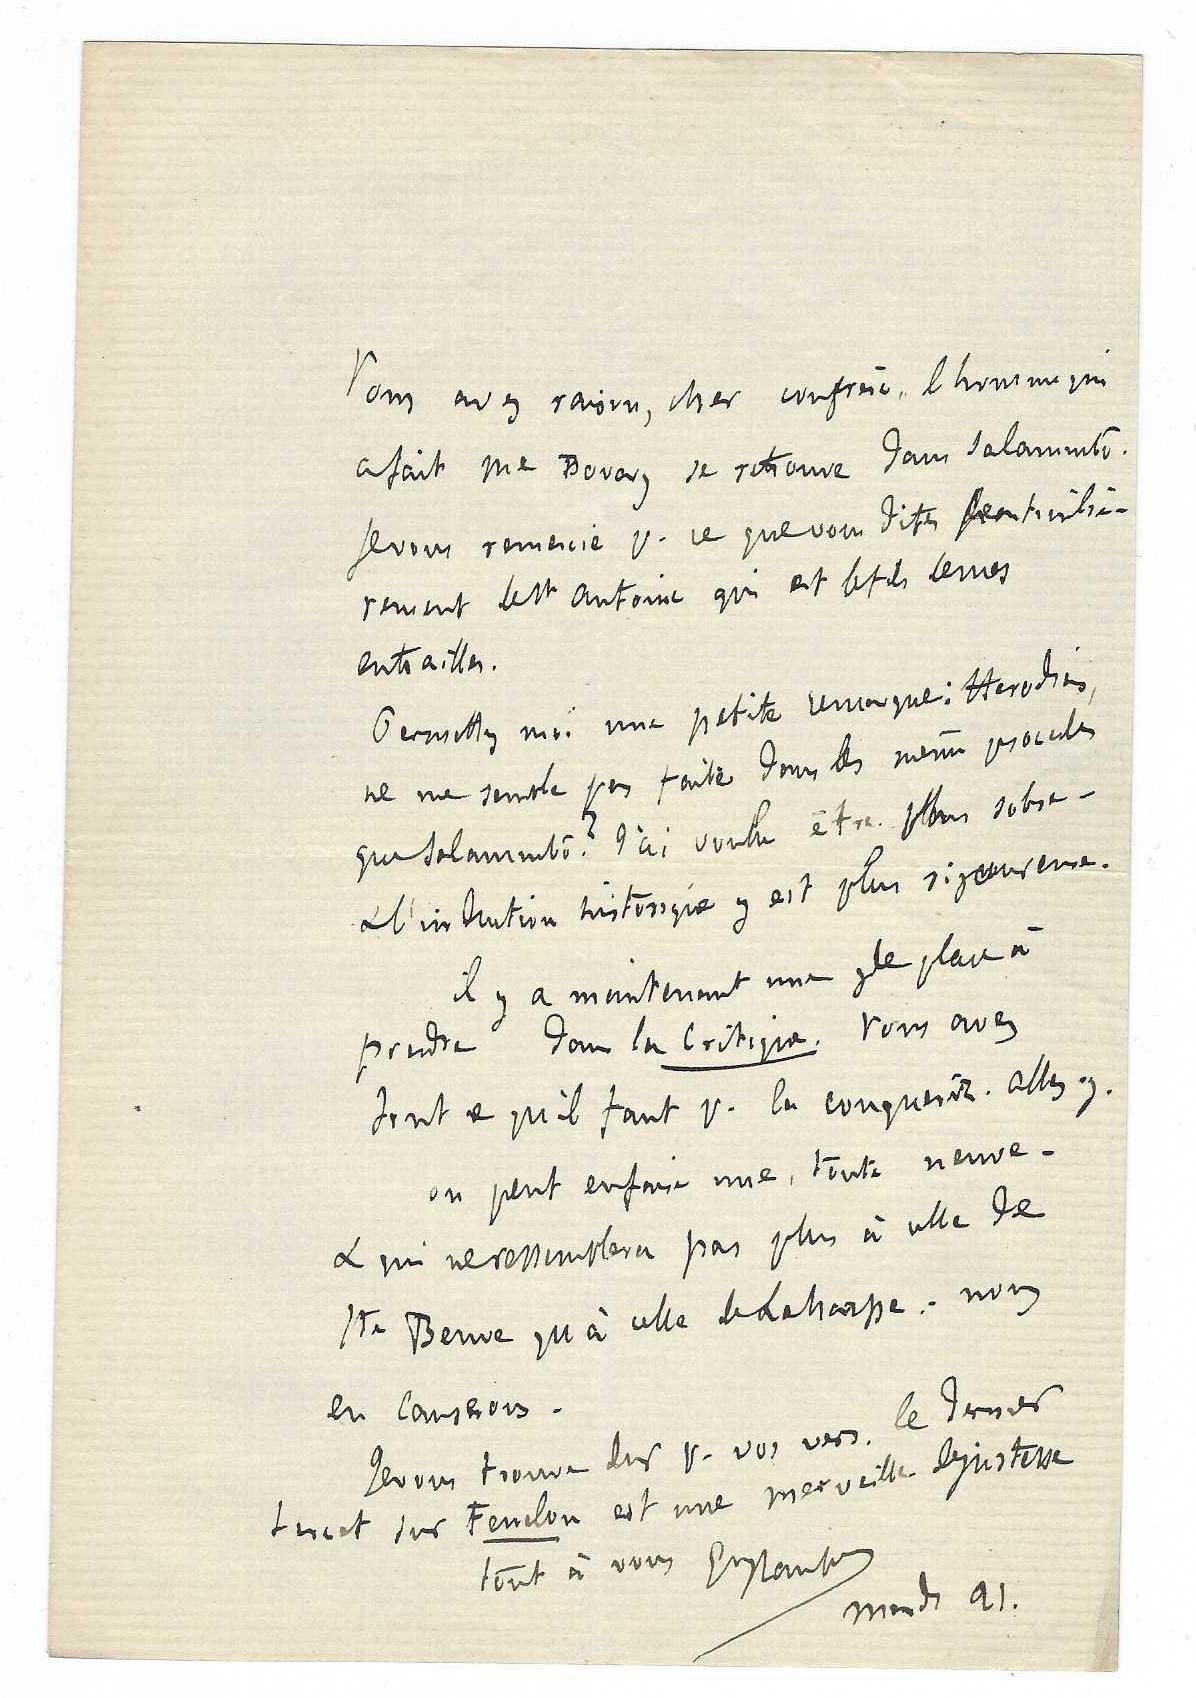 Vous avez raison, cher confrère, l'homme qui
a fait Me Bovary se retrouve dans Salammbô.
Je vous remercie p. ce que vous dites particuliè-
rement de St Antoine qui est le fils de mes
entrailles.
Permettez moi une petite remarque: Herodias,
ne me semble pas faite dans les même procédés
que Salammbô? J'ai voulu être plus sobre -
& l'induction historique y est plus rigoureuse.
il y a maintenant une gde place à
prendre dans la Critique. Vous avez
tout ce qu'il faut p. la conquérir. allez-y.
on peut en faire une, toute neuve -
& qui ne ressemblera pas plus à celle de
Ste Beuve qu'à celle de Laharpe. - nous
en causerons -
Je vous trouve dur p. vos vers. le dernier
tercet sur Fenelon est une merveille de justesse
tout à vous